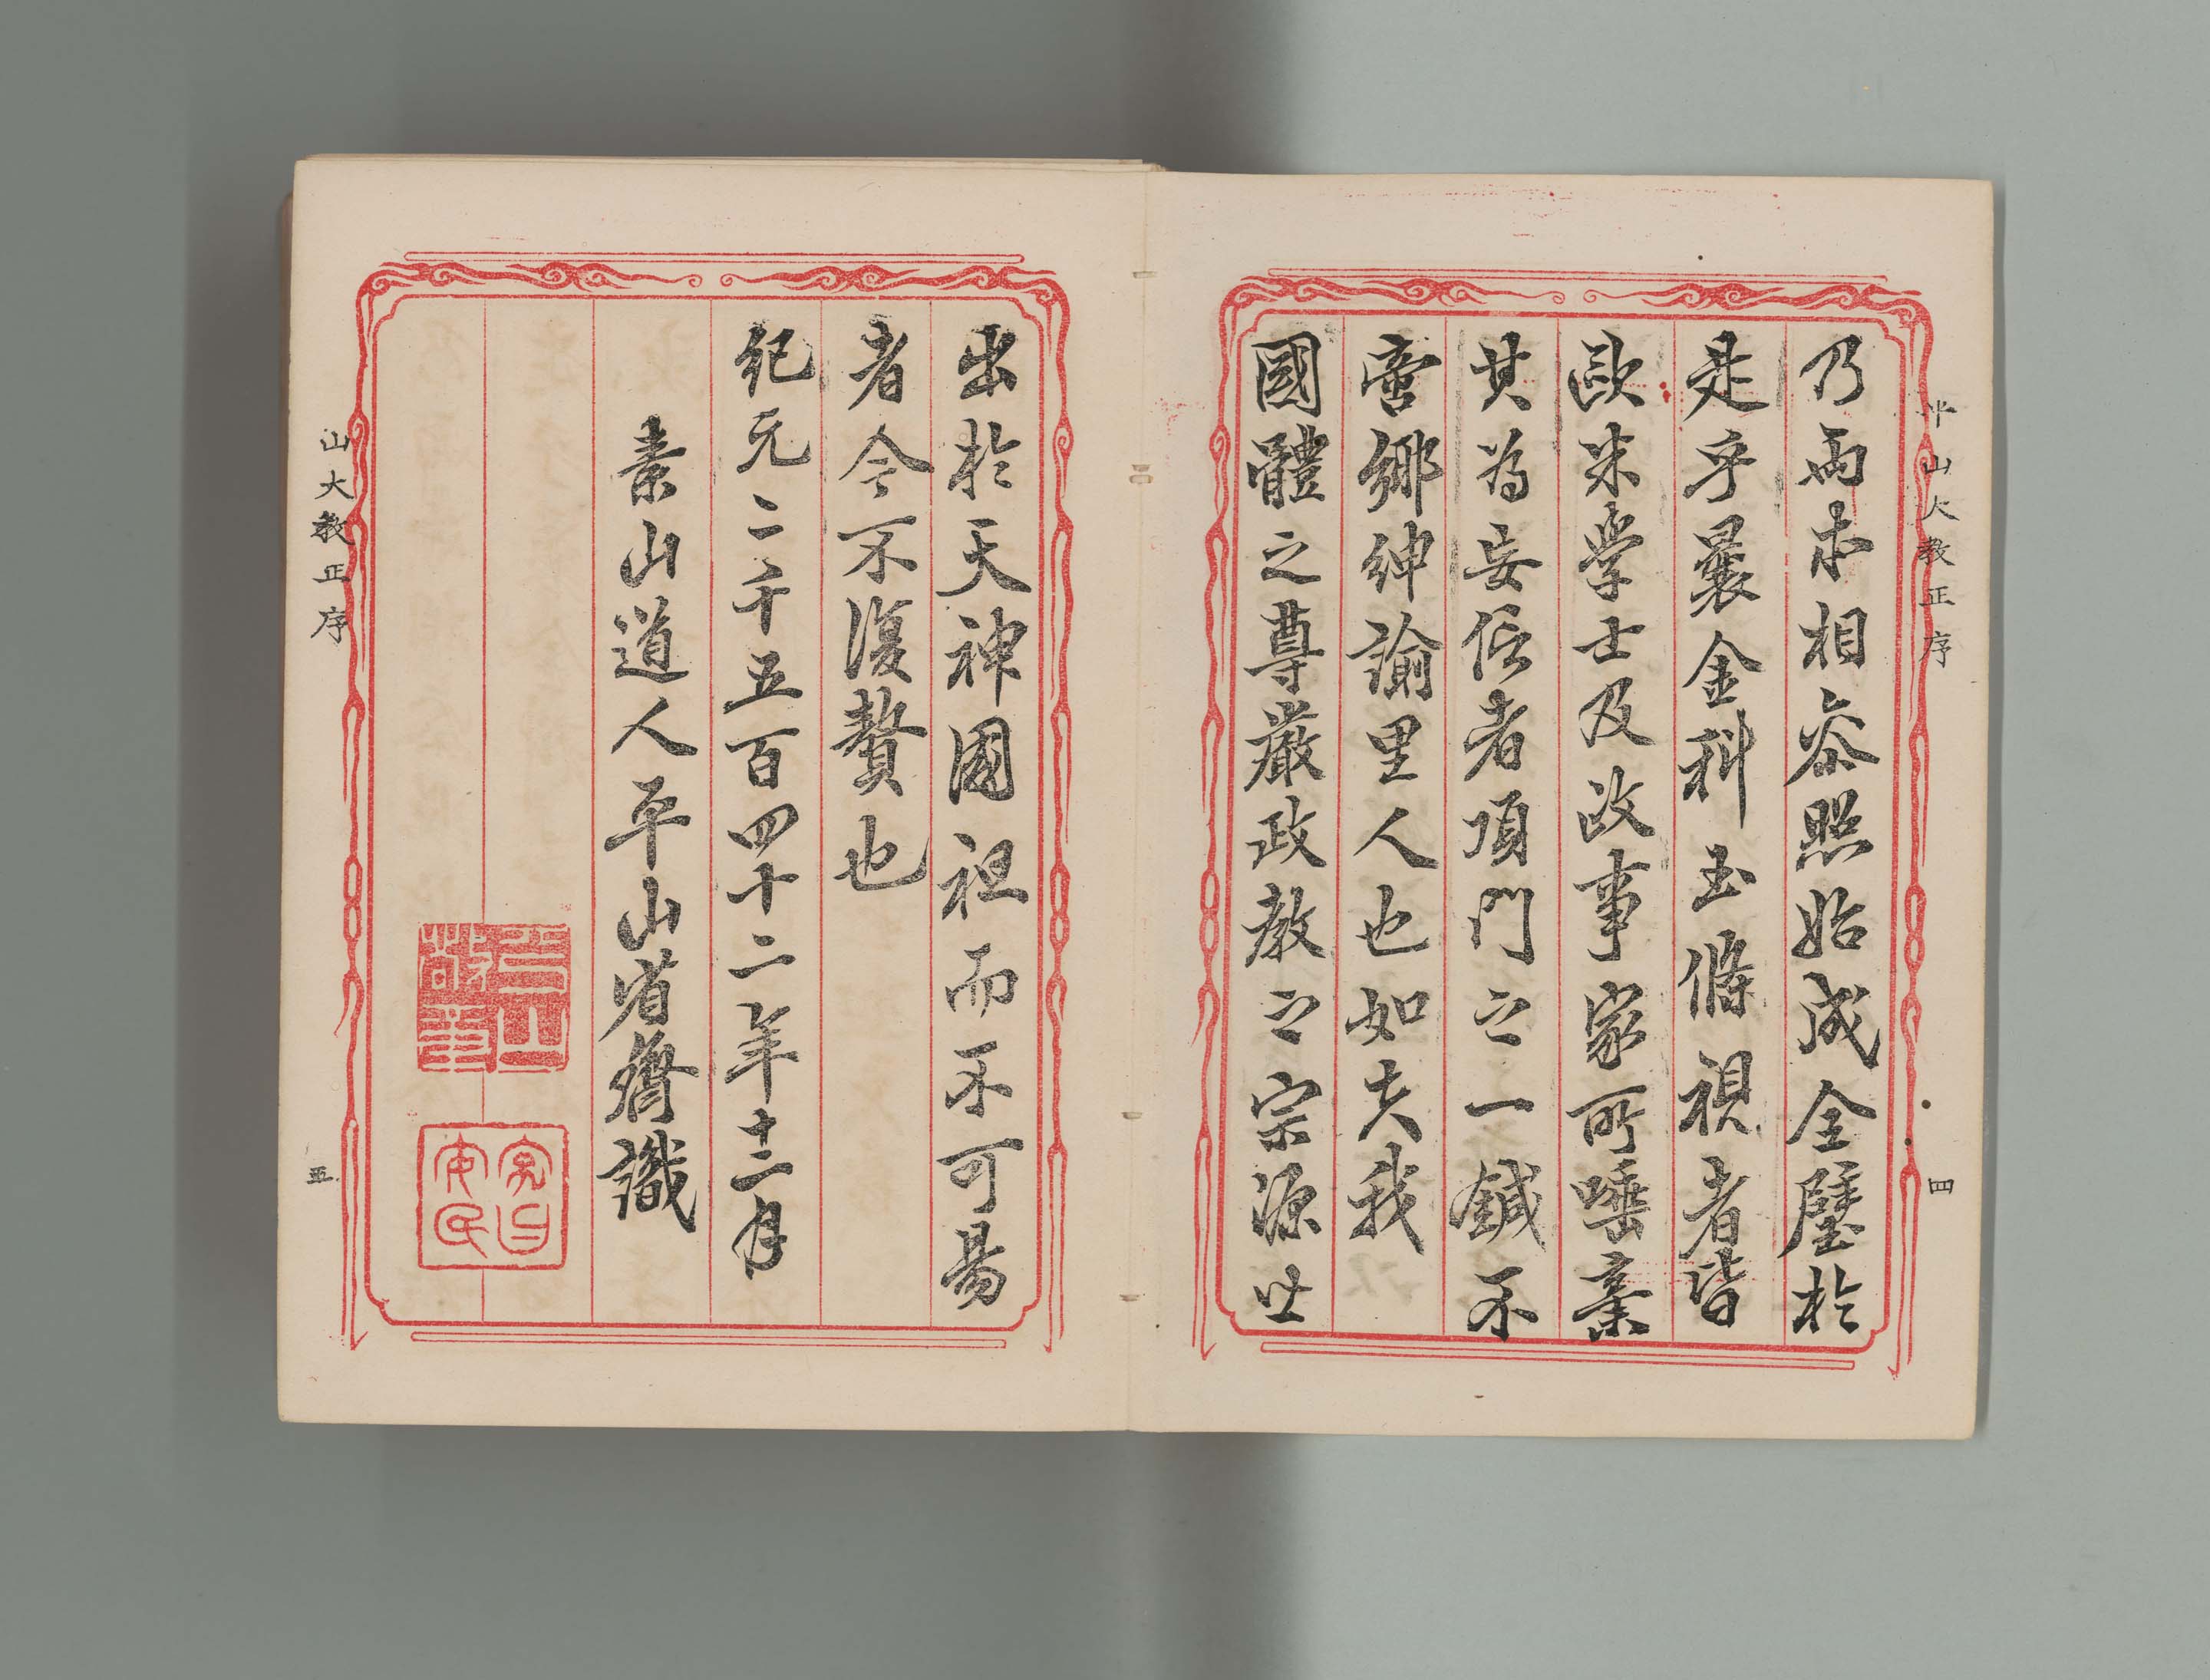 平山大教正序
四
乃両本相叅照始成全璧於
是乎曩金科玉條視者皆
歐米學士及政事家所唾棄
其為妄信者頂門之一鍼不
啻鄉紳諭里人也如夫我
國體之尊嚴政教之宗源
出於天神國祖而不可易
者今不復贅也
紀元二千五百四十二年十二月
素山道人平山省齋識
字曰安民
山大教正序
五